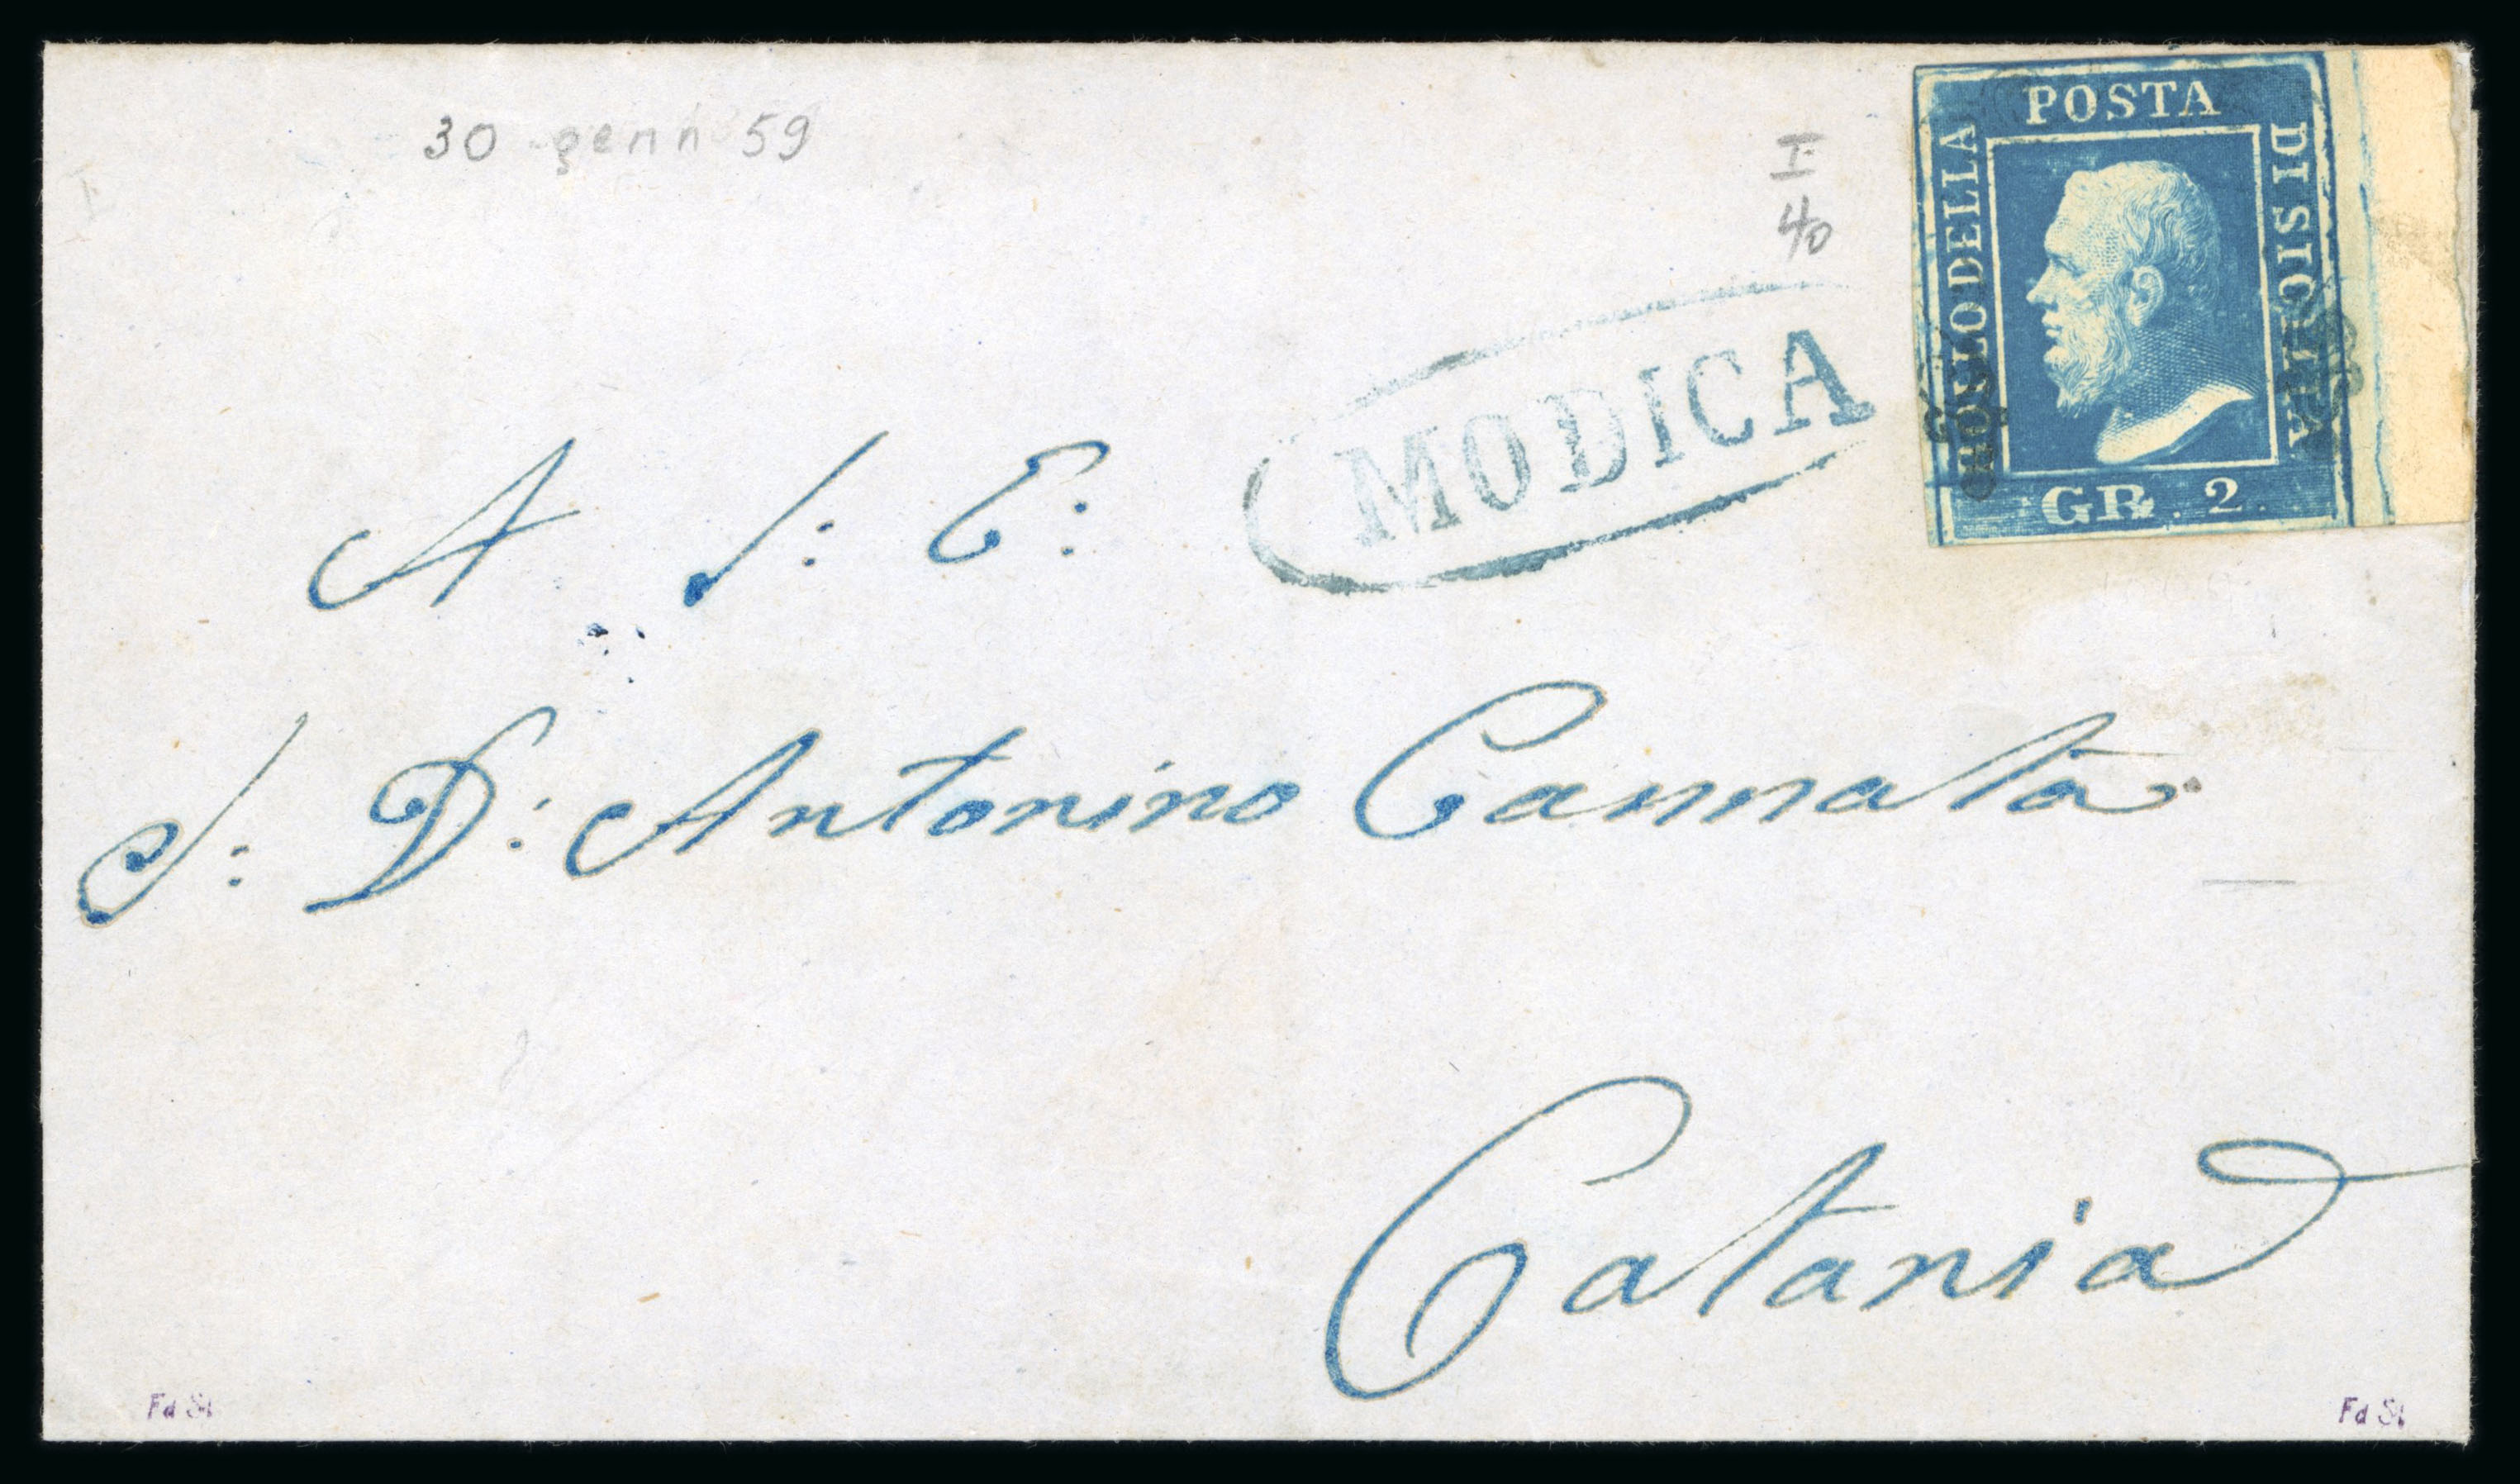 30 genn 59
I
40
POSTA
BOLLO DELLA
DI SICILIA
GR. 2.
MODICA
A S: E:
S: D: Antonino Cannata
Catania
Fd St
Fd St